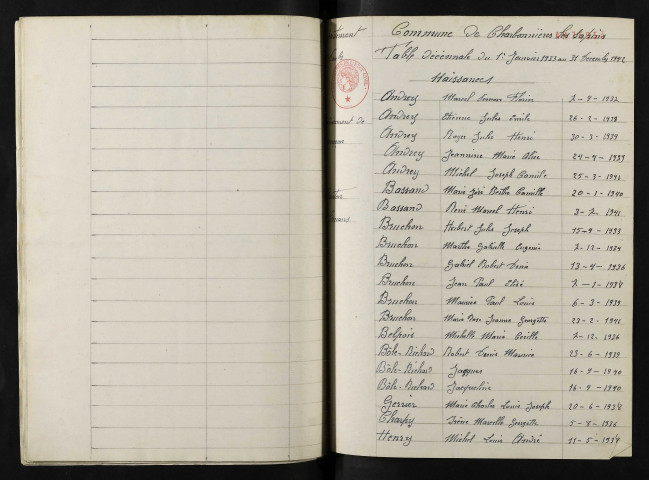 Commune de Charbonnières les Sapins
Table décennale du 1er Janvier 1933 au 31 Décembre 1942
Naissances
Andrey Marcel 1933
Andrey Etienne Jules Emile 26-2-1938
Andrey Roger Jules Henri 30-3-1939
Andrey Jeannine Marie Alice 24-4-1939
Andrey Michel Joseph Camille 25-3-1942
Bassand Marie José Berthe Camille 20-1-1940
Bassand René Marcel Henri 3-2-1941
Bruchon Herbert Jules Joseph 15-9-1933
Bruchon Marthe Gabrielle Eugénie 2-12-1934
Bruchon Gabriel Robert Denis 13-4-1936
Bruchon Jean Paul 2-1-1938
Bruchon Maurice Paul Louis 6-3-1939
Bruchon Marie Rose Jeanne Georgette 23-2-1941
Belpois Michelle Marie Cécille 2-12-1936
Bôle-Richard Robert Denis Maurice 25-6-1939
Bôle-Richard Jacques 16-9-1940
Bôle-Richard Jacqueline 16-9-1940
Marie Charles Louis Joseph 20-6-1938
Charpy Irène Marcelle Georgette 5-8-1936
Henry Michel Louis André 11-5-1934